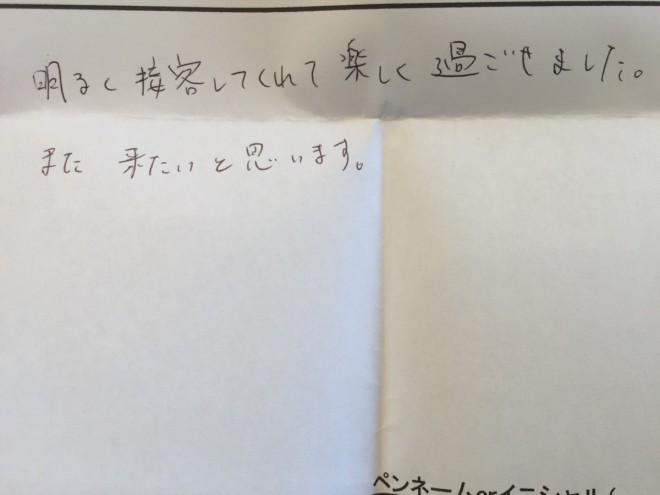 明るく接客してくれて楽しく過ごせました。
また来たいと思います。
ペンネームorイニシャル(